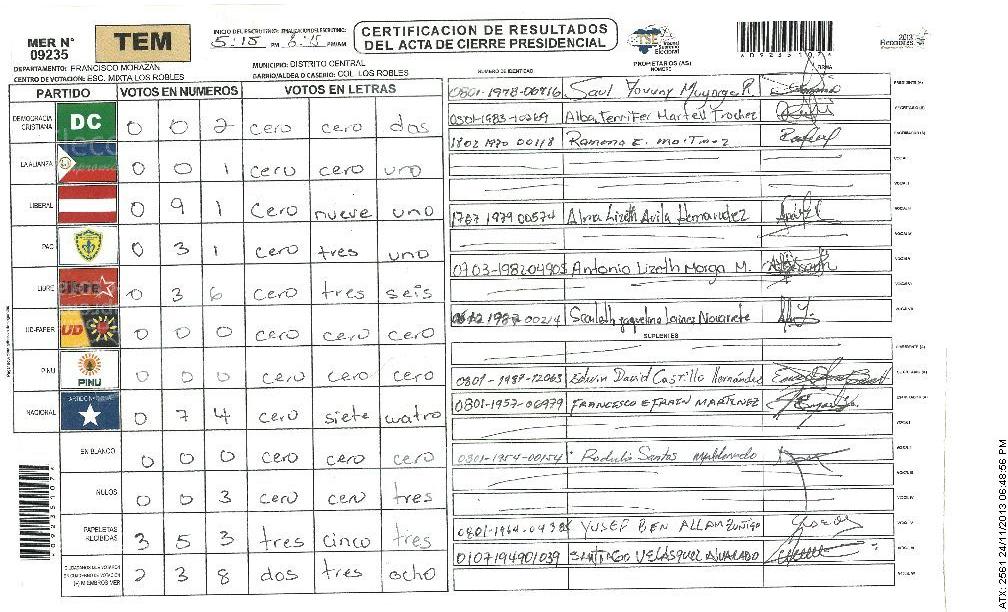 MER N° 09235
TEM
INICIO DEL ESCRUTINIO: FINALIZACION DEL ESCRUTINIO:
5:15 PM 6:15 PM/AM
CERTIFICACION DE RESULTADOS
DEL ACTA DE CIERRE PRESIDENCIAL
TSE
Tribunal Supremo Electoral
2013
Elecciones
DEPARTAMENTO: FRANCISCO MORAZAN
MUNICIPIO: DISTRITO CENTRAL
CENTRO DE VOTACION: ESC. MIXTA LOS ROBLES
BARRIO/ALDEA O CASERIO: COL. LOS ROBLES
PARTIDO VOTOS EN NUMEROS VOTOS EN LETRAS
DEMOCRACIA CRISTIANA DC 0 0 2 cero cero dos
LA ALIANZA 0 0 1 cero cero uno
LIBERAL 0 9 1 cero nueve uno
PAC 0 3 1 cero tres uno
LIBRE libre 0 3 6 cero tres seis
UD-FAPER UD 0 0 0 cero cero cero
PINU PINU 0 0 0 cero cero cero
NACIONAL 0 7 4 cero siete cuatro
EN BLANCO 0 0 0 cero cero cero
NULOS 0 0 3 cero cero tres
PAPELETAS RECIBIDAS 3 5 3 tres cinco tres
CIUDADANOS QUE VOTARON EN CUADERNO DE VOTACION (+) MIEMBROS MER 2 3 8 dos tres ocho
NUMERO DE IDENTIDAD PROPIETARIOS (AS) NOMBRE FIRMA
0801-1978-06716 Saul Yovany R. PRESIDENTE (A)
0301-1983-10269 Alba Jennifer Martell Trochez SECRETARIO (A)
1802 1970 00118 Ramona E. martinez ESCRUTADOR (A)
1787 1979 00574 Alma Lizeth Avila Hernandez
0703-198204905 Antonia Lizeth M.
1987 00214 Scarleth Jaquelina Lainez Navarrete
SUPLENTES
0801-1987-12063 Edwin David Castillo Hernández
0801-1957-06979 FRANCISCO EFRAIN MARTINEZ
0801-1954-00154 Rodulio Santos maldonado
0801-1964-04385 YUSEF BEN ALLAM Zuñiga
0107194901039 SANTIAGO VELASQUEZ ALVARADO
ATX: 2561 24/11/2013 06:48:56 PM